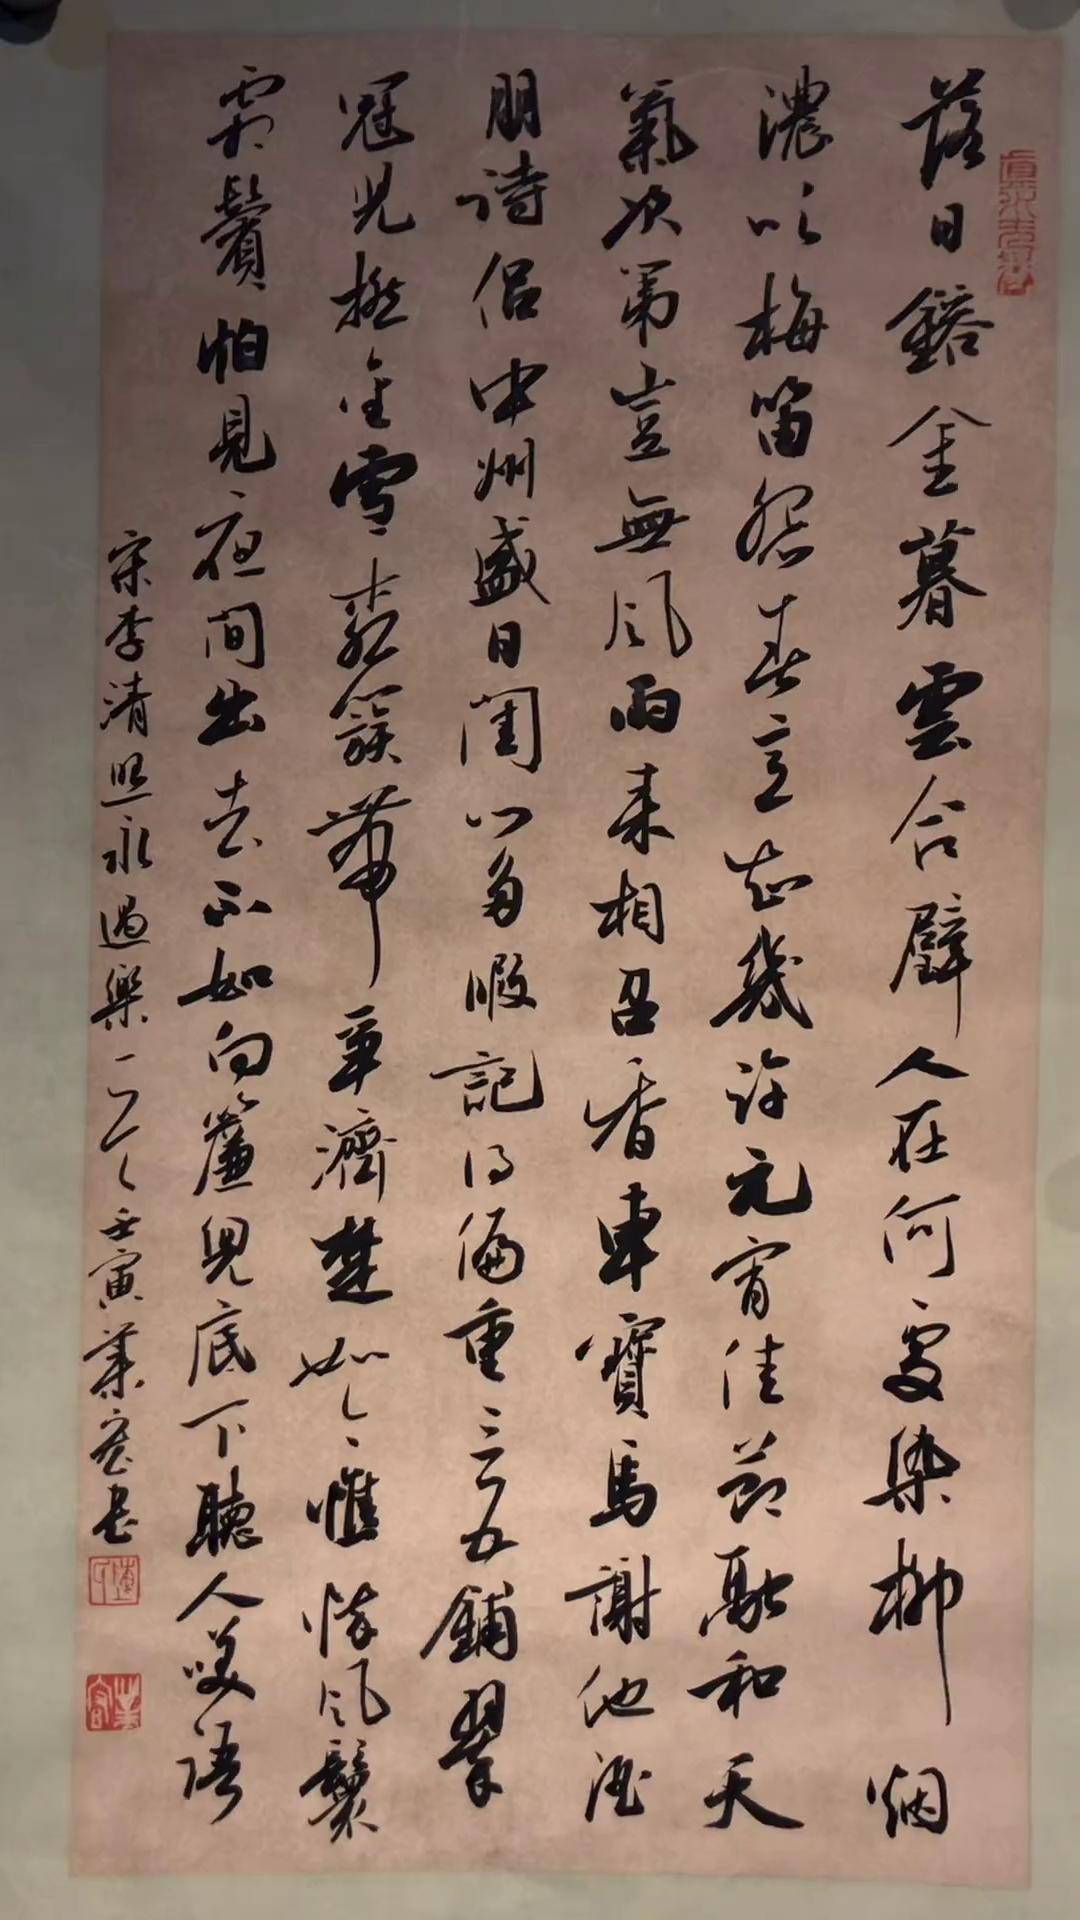 落日鎔金暮雲合璧人在何處染柳烟
濃吹梅笛怨春意知幾許元宵佳節融和天
氣次第豈無風雨来相召香車寶馬謝他酒
朋詩侣中州盛日閨門多暇記得偏重三五鋪翠
冠兒撚金雪柳簇帶爭濟楚如今憔悴風鬟
霜鬢怕見夜間出去不如向簾兒底下聽人笑語
宋李清照永遇樂一首壬寅葉書